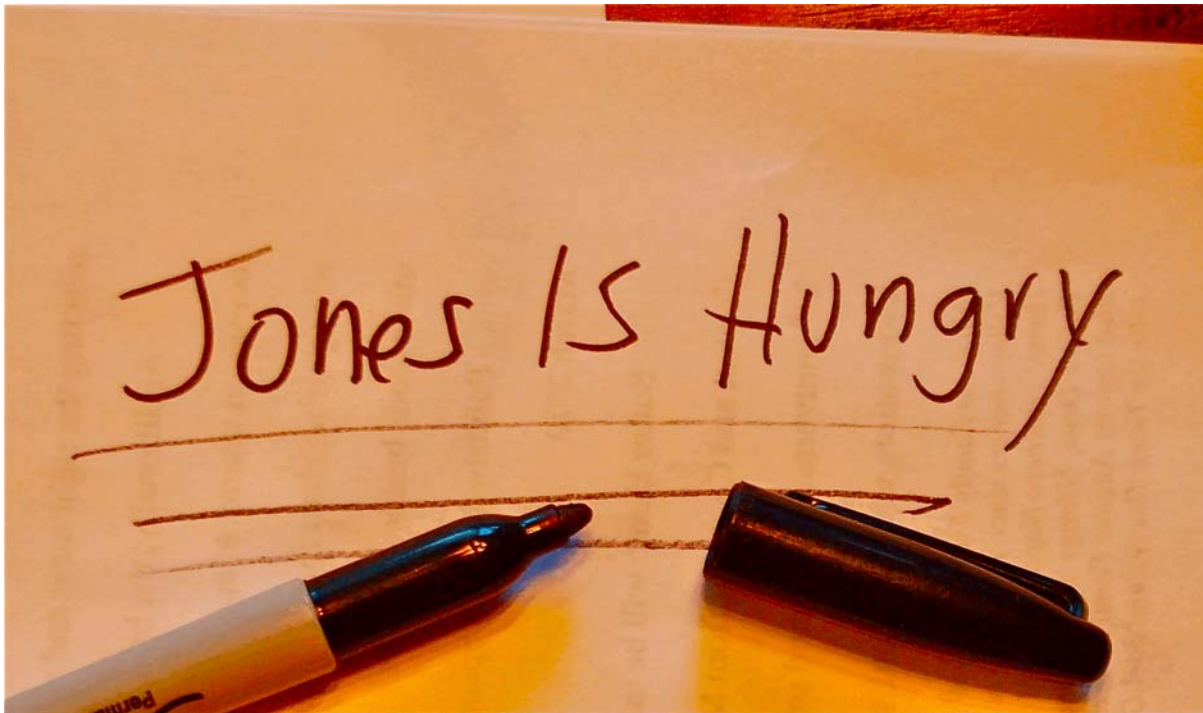 Jones Is Hungry